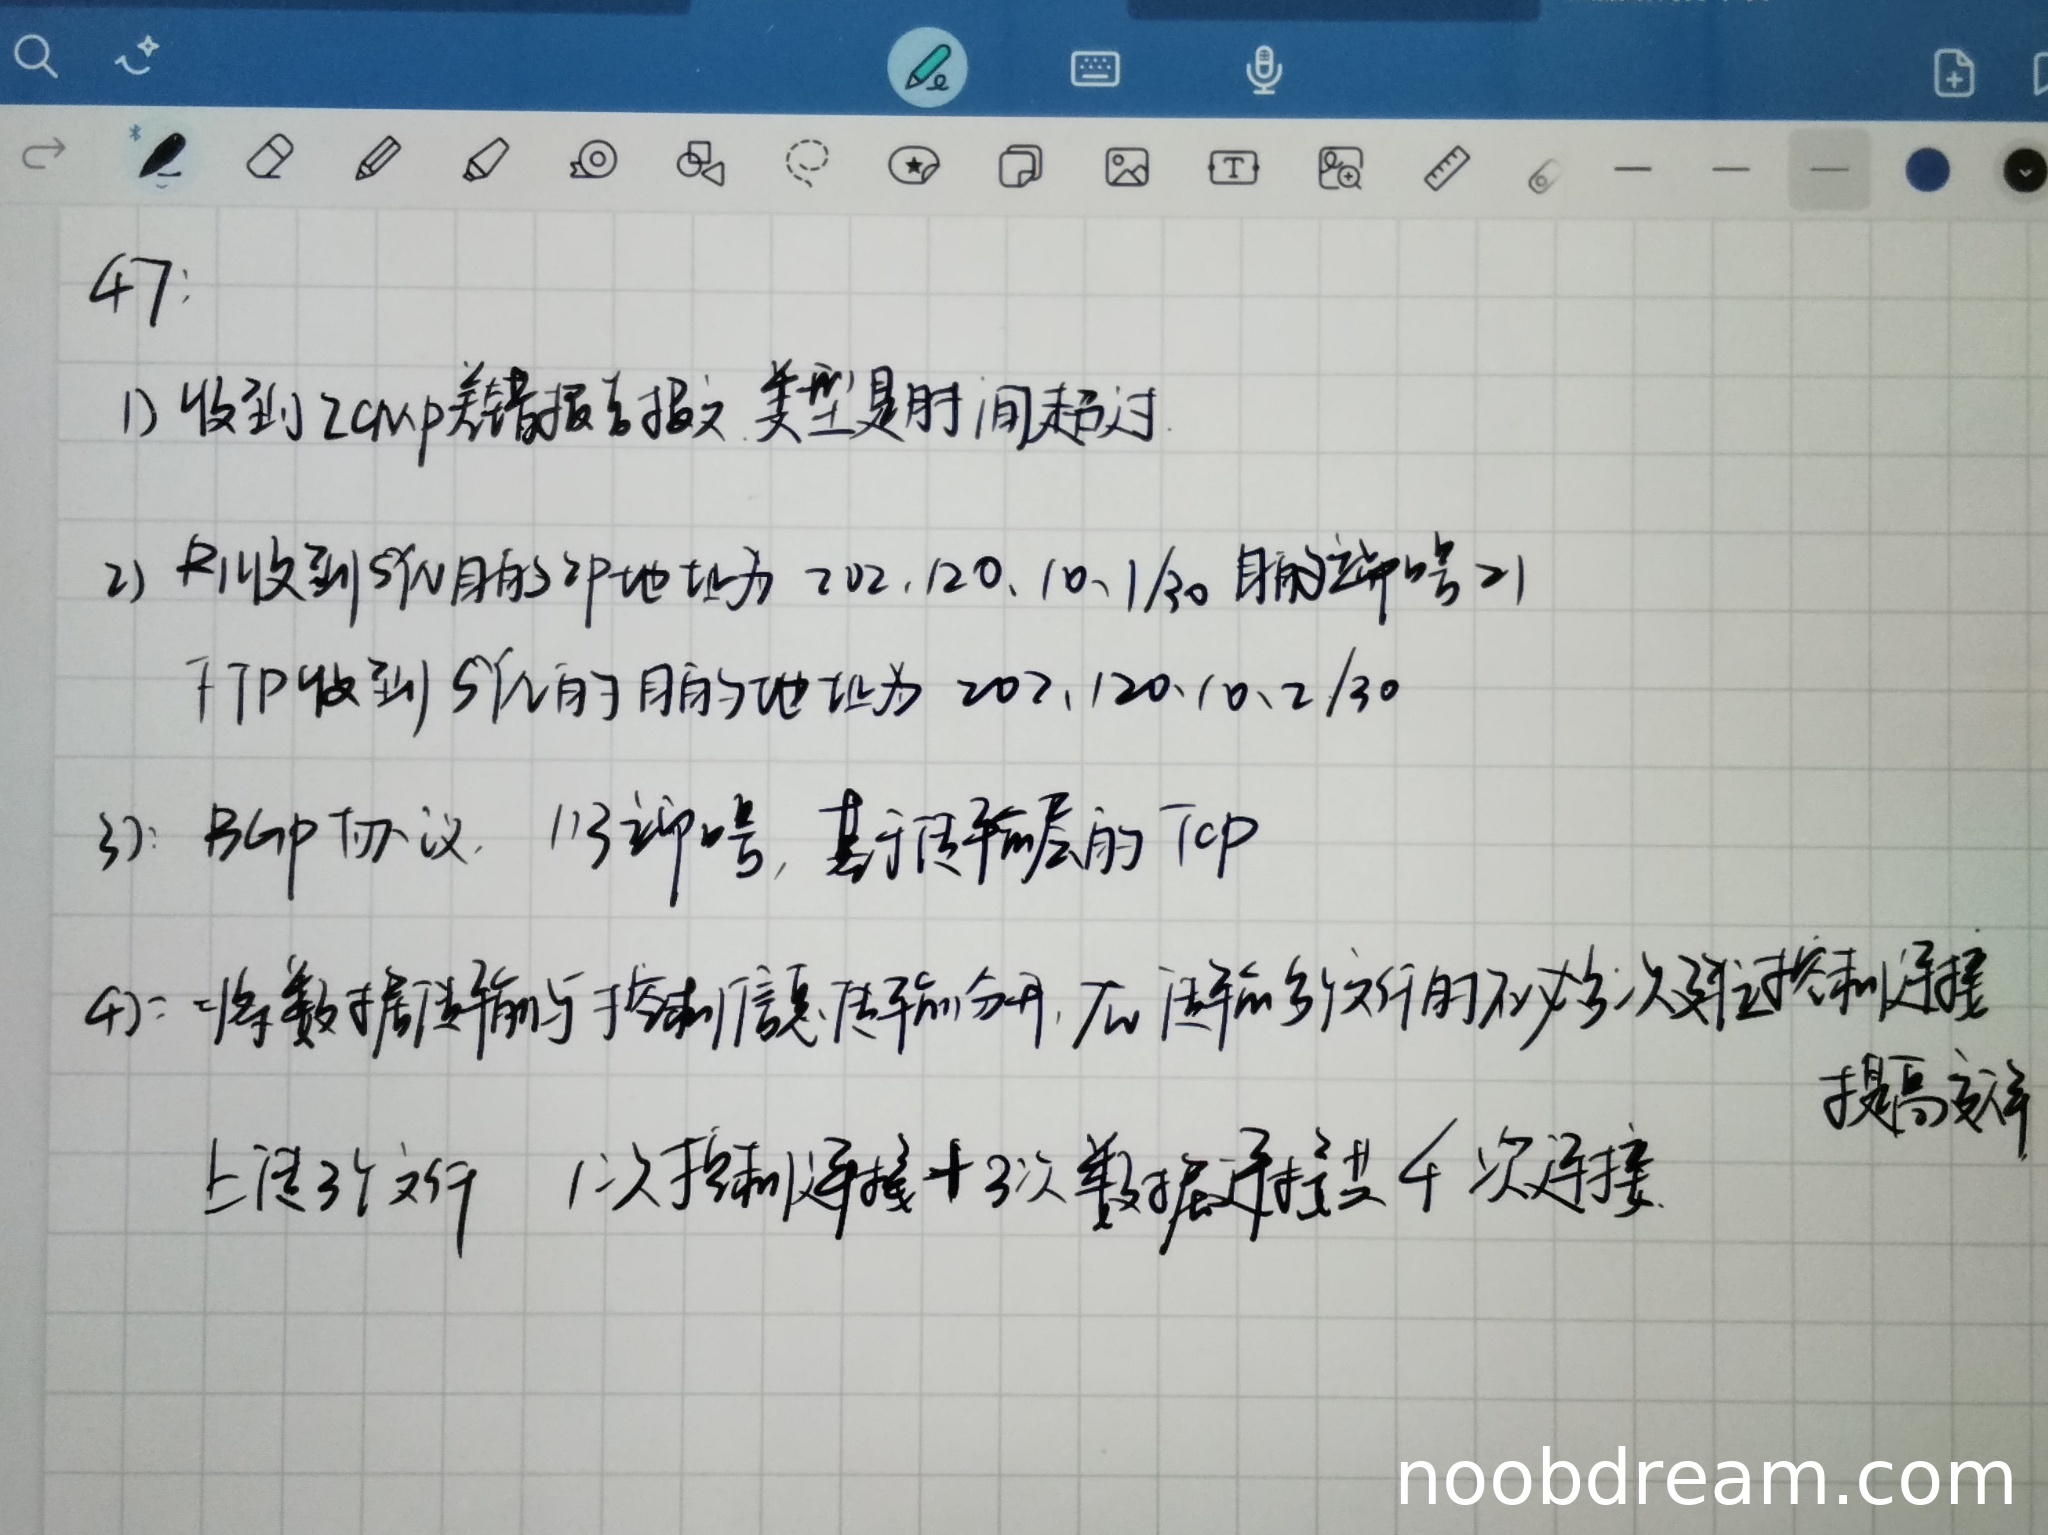 47:
1) 收到ICMP差错报告报文.类型是时间超过.
2) R1收到SYN目的IP地址为 202.120.10.1/30 目的端口号21
FTP收到SYN的目的地址为 202.120.10.2/30
3): BGP协议. 113端口号, 基于传输层的TCP
4): 将数据传输与控制信息传输分开, 在传输多个文件时不必多次建立控制连接
提高效率
上传3个文件 1次控制连接+3次数据连接共4次连接.
noobdream.com